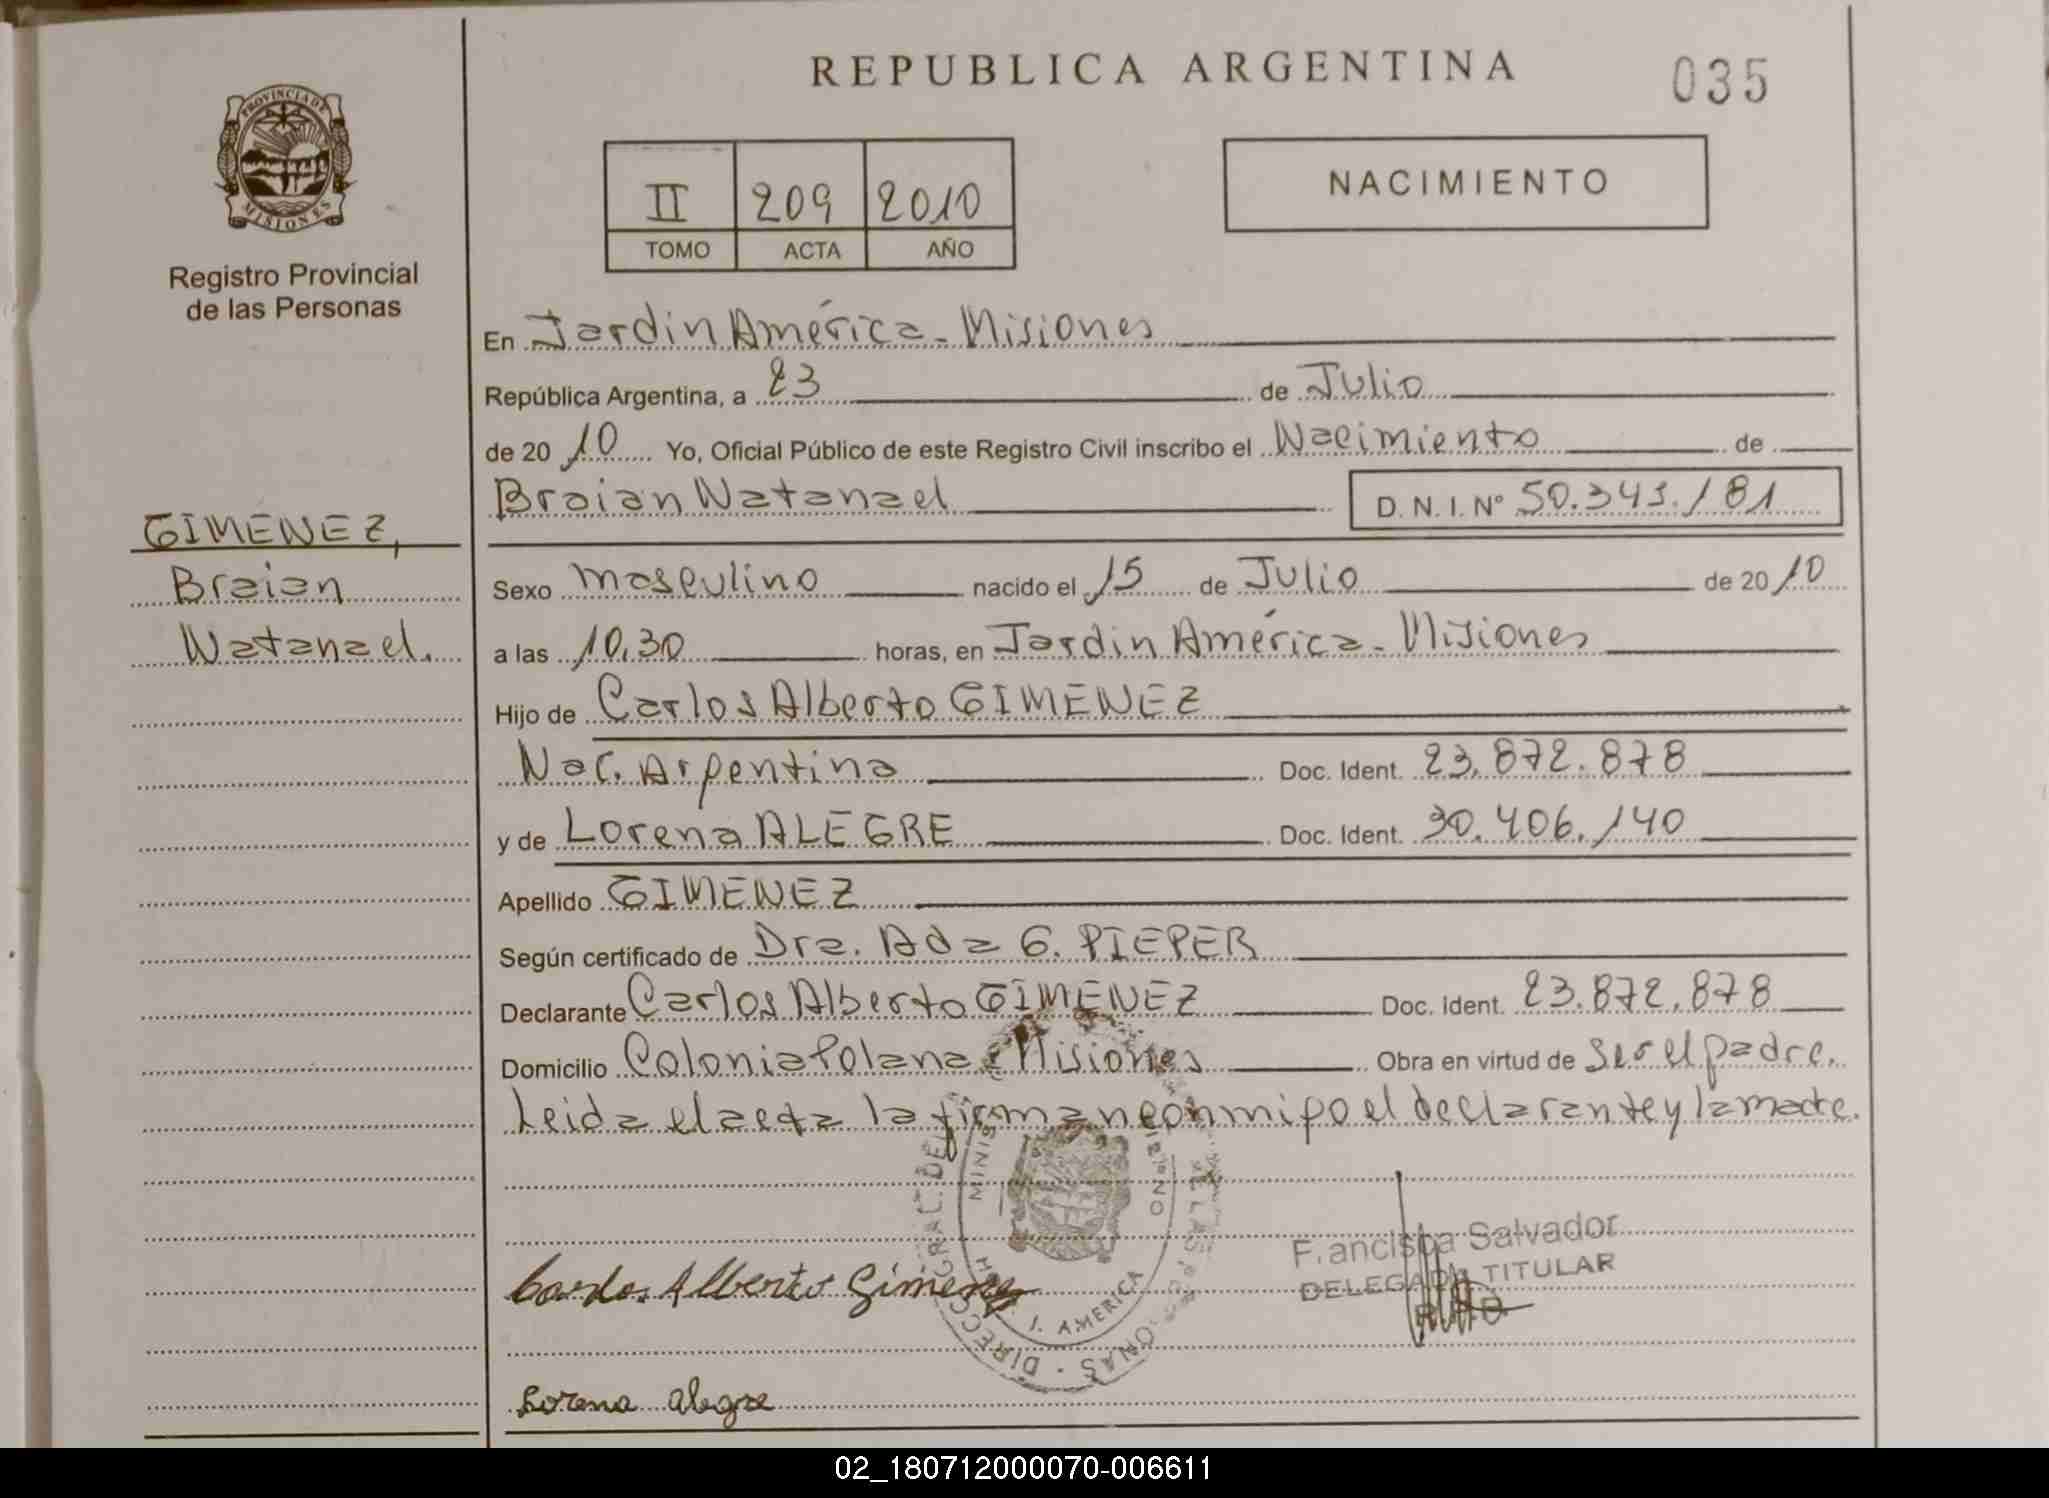 REPUBLICA ARGENTINA
035
PROVINCIA DE
MISIONES
Registro Provincial
de las Personas
II 209 2010
TOMO ACTA AÑO
NACIMIENTO
En Jardin América - Misiones
República Argentina, a 23 de Julio
de 20 10 Yo, Oficial Público de este Registro Civil inscribo el Nacimiento de
Braian Natanael D. N. I. Nº 50.343.181
GIMENEZ,
Braian
Natanael.
Sexo masculino nacido el 15 de Julio de 20 10
a las 10,30 horas, en Jardin América - Misiones
Hijo de Carlos Alberto GIMENEZ
Nac. Argentina Doc. Ident. 23.872.878
y de Lorena ALEGRE Doc. Ident. 30.406.140
Apellido GIMENEZ
Según certificado de Dra. Ada G. PIEPER
Declarante Carlos Alberto GIMENEZ Doc. Ident. 23.872.878
Domicilio Colonia Polana - Misiones Obra en virtud de ser el padre.
Leida el acta la firman conmigo el declarante y la madre.
Francisca Salvador
DELEGADA TITULAR
Carlos Alberto Gimenez
J. AMERICA
Lorena Alegre
02_180712000070-006611